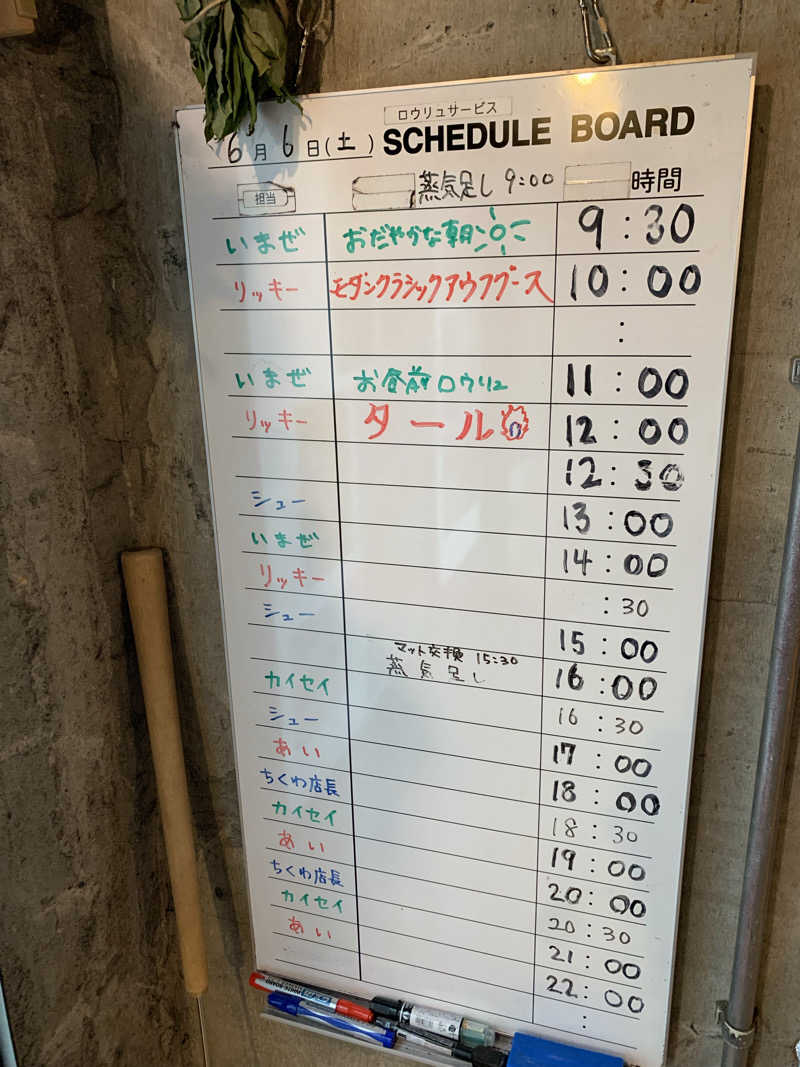 ロウリュサービス
6月6日(土) SCHEDULE BOARD
担当 蒸気足し 9:00 時間
いまぜ おだやかな朝 9:30
リッキー モダンクラシックアウフグース 10:00
:
いまぜ お昼前ロウリュ 11:00
リッキー タール 12:00
12:30
シュー 13:00
いまぜ 14:00
リッキー :30
シュー 15:00
マット交換 15:30
蒸気足し 16:00
カイセイ 16:30
シュー 17:00
あい 18:00
ちくわ店長 18:30
カイセイ 19:00
あい 20:00
ちくわ店長 20:30
カイセイ 21:00
あい 22:00
: